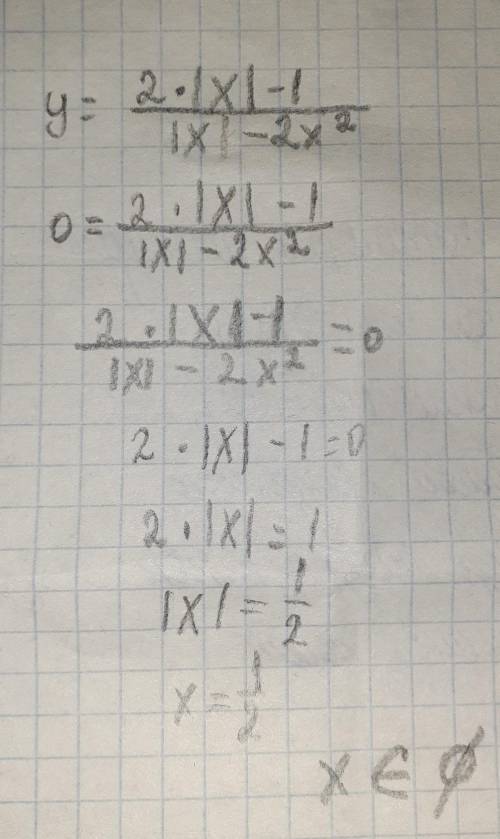 y = (2 · |x| - 1) / (|x| - 2x²)
0 = (2 · |x| - 1) / (|x| - 2x²)
(2 · |x| - 1) / (|x| - 2x²) = 0
2 · |x| - 1 = 0
2 · |x| = 1
|x| = 1/2
x = 1/2
x ∈ ∅